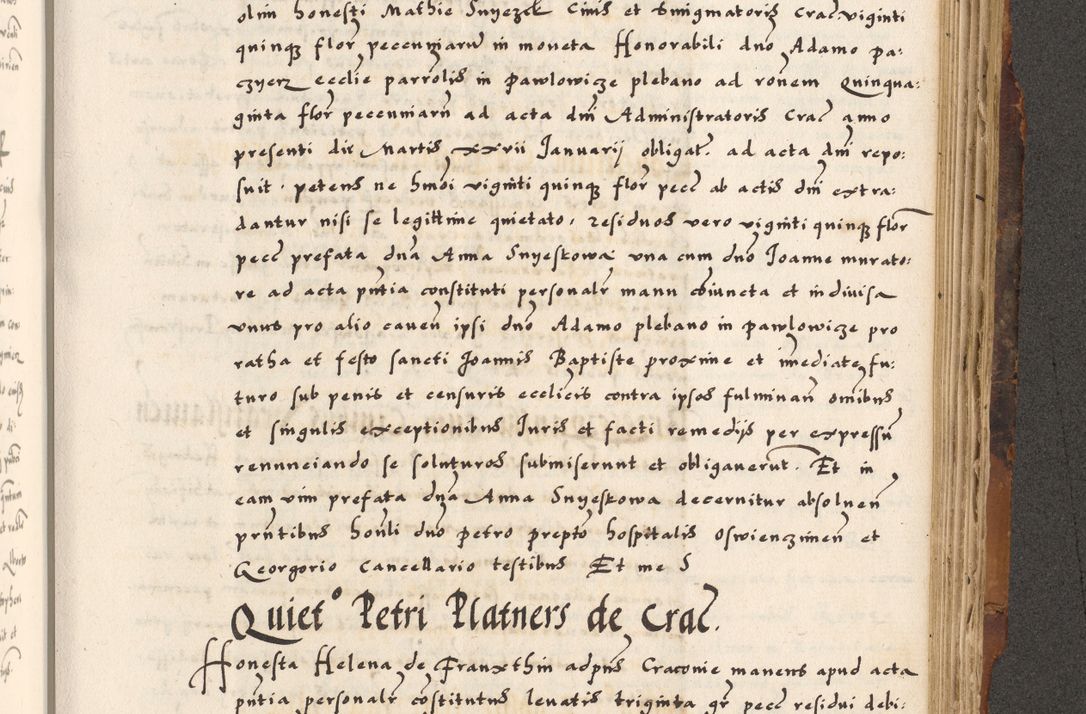 olim honesti Mathie Snyezek Civis et Smigmatoris Crac viginti
quinqȝ flor pecuniarū in moneta Honorabili dno Adamo pa:
czyerz ecclie parrolis in Pawlowicze plebano ad ronem Quinqua:
ginta flor pecuniarū ad acta dni Administratoris Crac anno
presenti die Martis xxvii Ianuarij obligat. ad acta dni repo:
suit. petens ne hmoi viginti quinqȝ flor pecc ab actis dni extra:
dantur nisi se legittime quietato, residuos vero viginti quinqȝ flor
pecc prefata dna Anna Snyeskowa una cum dno Joanne murato:
re ad acta pntia constituti personalr manu cōiuncta et indivisa
unus pro alio caven ipsi dno Adamo plebano in Pawlowicze pro
ratha et festo sancti Joannis Baptiste proxime et imediate fu:
turo sub penis et censuris ecclicis contra ipsos fulminan omibus
et singulis exceptionibus Iuris et facti remedijs per expressū
renunciando se soluturos submiserunt et obligaverūt. Et in
eam vim prefata dna Anna Snyeskowa decernitur absoluen
pntibus honli dno Petro prepto hospitalis Oswienczimen et
Georgorio Cancellario testibus Et me S
Quietº Petri Platners de Crac.
Honesta Helena de Franxthin adpns Craconie manens apud acta
pntia personalr cōstitutus levatis triginta gr pecc residui debi: